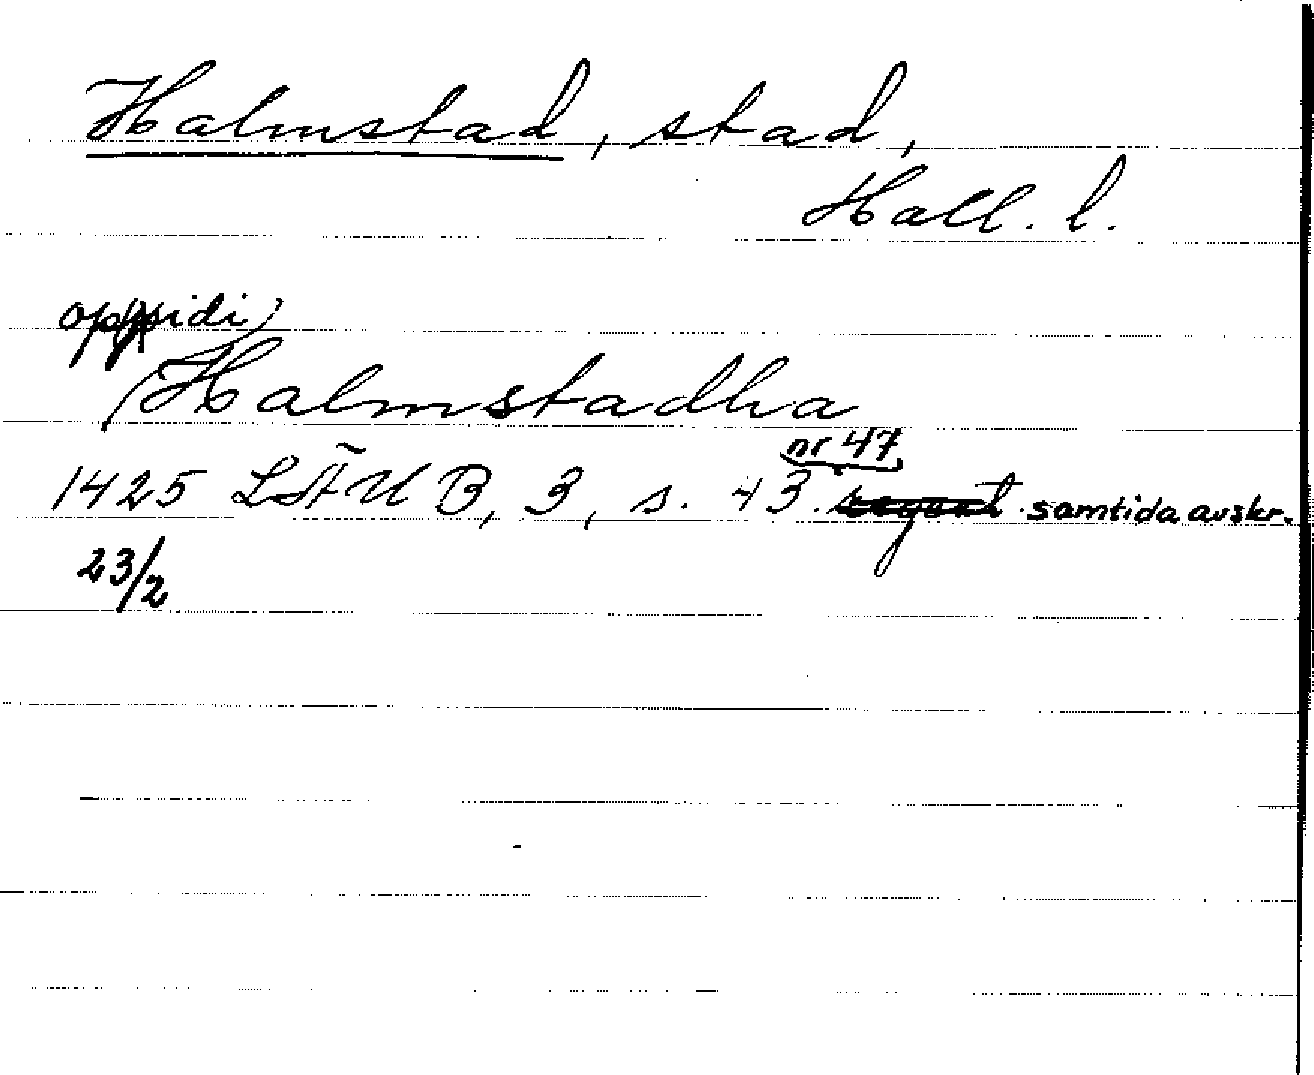 Halmstad, stad,
Hall. l.
oppidi
Halmstadha
nr 47
1425 LÄUB, 3, s. 43. samtida avskr.
23/2